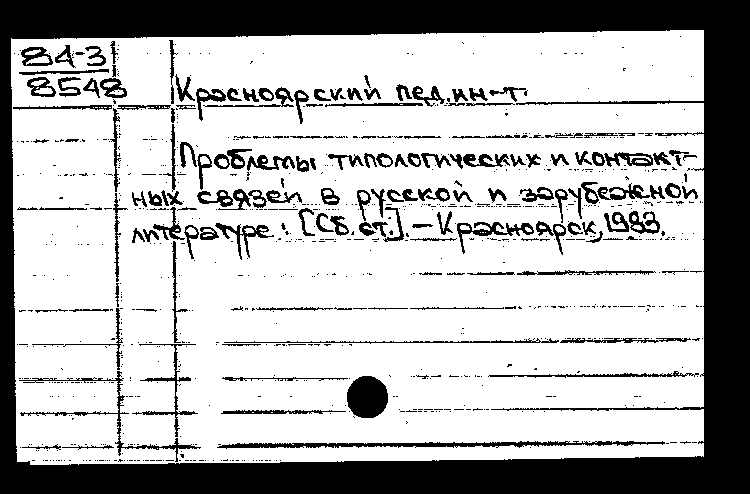 84-3
8548
Красноярский пед. ин-т.
Проблемы типологических и контакт-
ных связей в русской и зарубежной
литературе : [Сб. ст.]. – Красноярск, 1983.